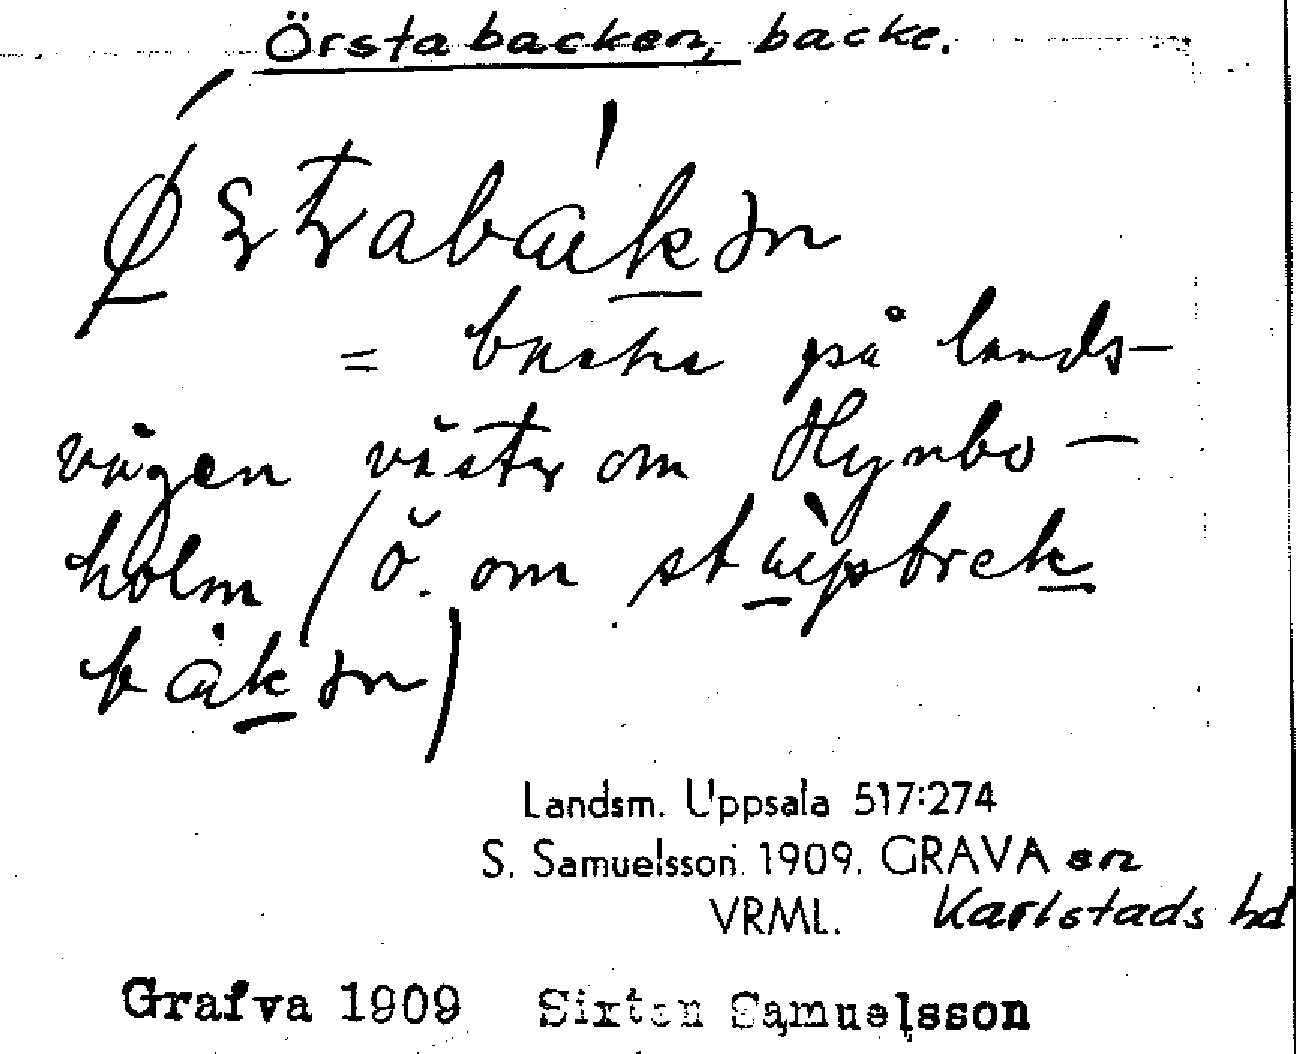 Örstabacken, backe.
= backe på lands-
vägen väster om Hynbo-
holm (ö. om
Landsm. Uppsala 517:274
S. Samuelsson. 1909. GRAVA sn
VRML. Karlstads hd
Grafva 1909 Sixten Samuelsson